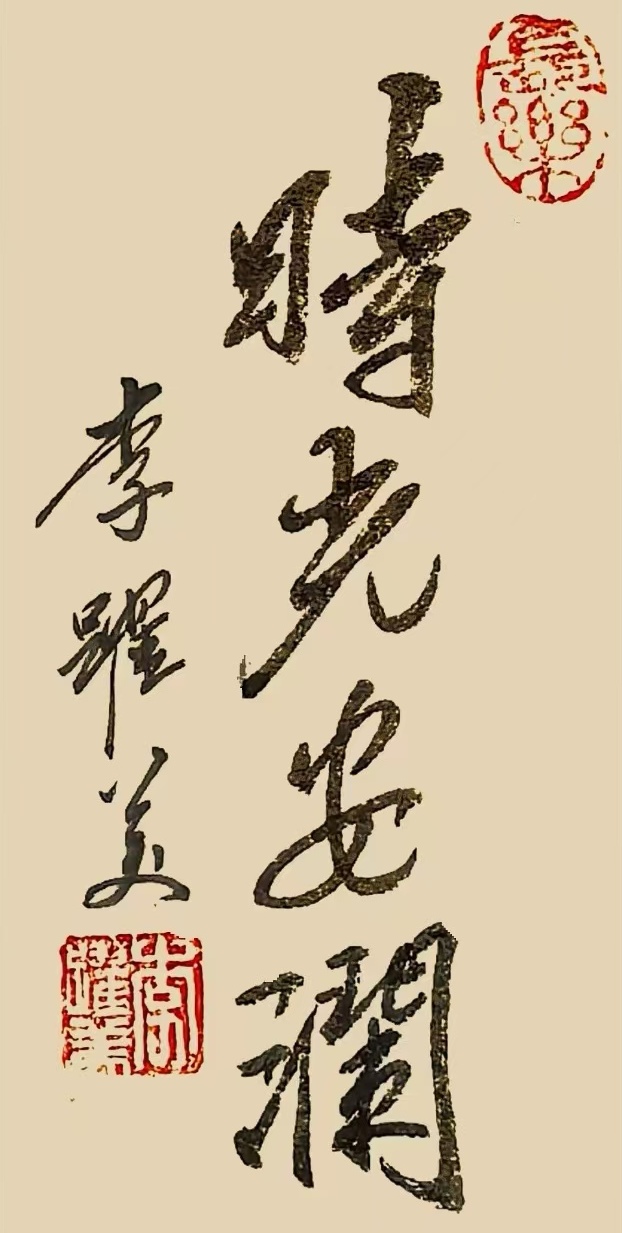 時光安瀾
李躍美